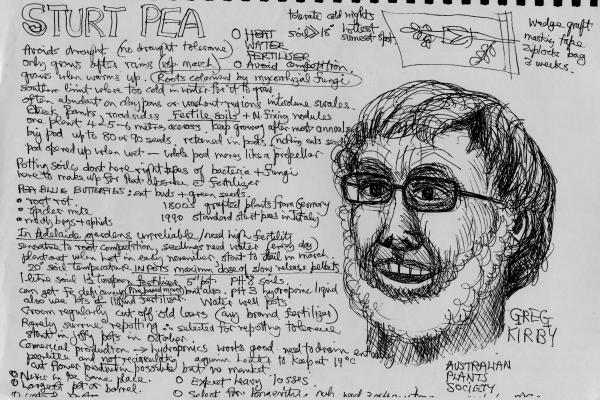 STURT PEA
tolerate cold nights
HEAT soil > 18° hottest sunniest spot.
WATER
FERTILISER
Avoid competition.
Wedge graft
masking tape
ziplock bag
3 weeks.
Avoids drought (no drought tolerance)
only grows after rains
grows when warms up. Roots colonised by mycorrhizal fungi
southern limit where too cold in winter for it to grow
often abundant on clay pans or washout regions intersdune swales.
Creek banks, roadsides. Fertile soils + N-fixing nodules
one plant 4-5-6 metres across. Keep growing after most annuals
big pod up to 80 or 90 seeds. retained in pods
pod opened up when wet — winds pod moves like a propellor
Potting soils dont have right types of bacteria + fungi
have to make up for that absence fertilizer
PEA BLUE BUTTERFLIES: eat buds + green seeds.
root rot. 1800s grafted plants from Germany
spider mite 1990 standard sturt peas in Italy
mealy bugs + aphids
In Adelaide gardens unreliable / need high fertility
sensitive to root competition, seedlings need water every day
plant out when hot in early november, start to die in march.
20° soil temperature. IN POTS maximum dose of slow release pellets
1-litre soil 1 teaspoon fertilizer 5" pot. PH 8 soils
can get Fe deficiency PH 5 hydroponic liquid
also use lots of liquid fertilizer. Water well pots
Groom regularly cut off old leaves (any brand fertilizer)
Rarely survive repotting ∴ selected for repotting tolerance
start in jiffy pots in October.
Comercial production → hydroponics works good. need to drain
perlite and not recirculating aquarium heater to keep at 19°C
cut flower production possible but no market.
Never in the same place. Expect heavy losses.
Largest pot or barrel.
Select for
GREG KIRBY
AUSTRALIAN
PLANTS
SOCIETY